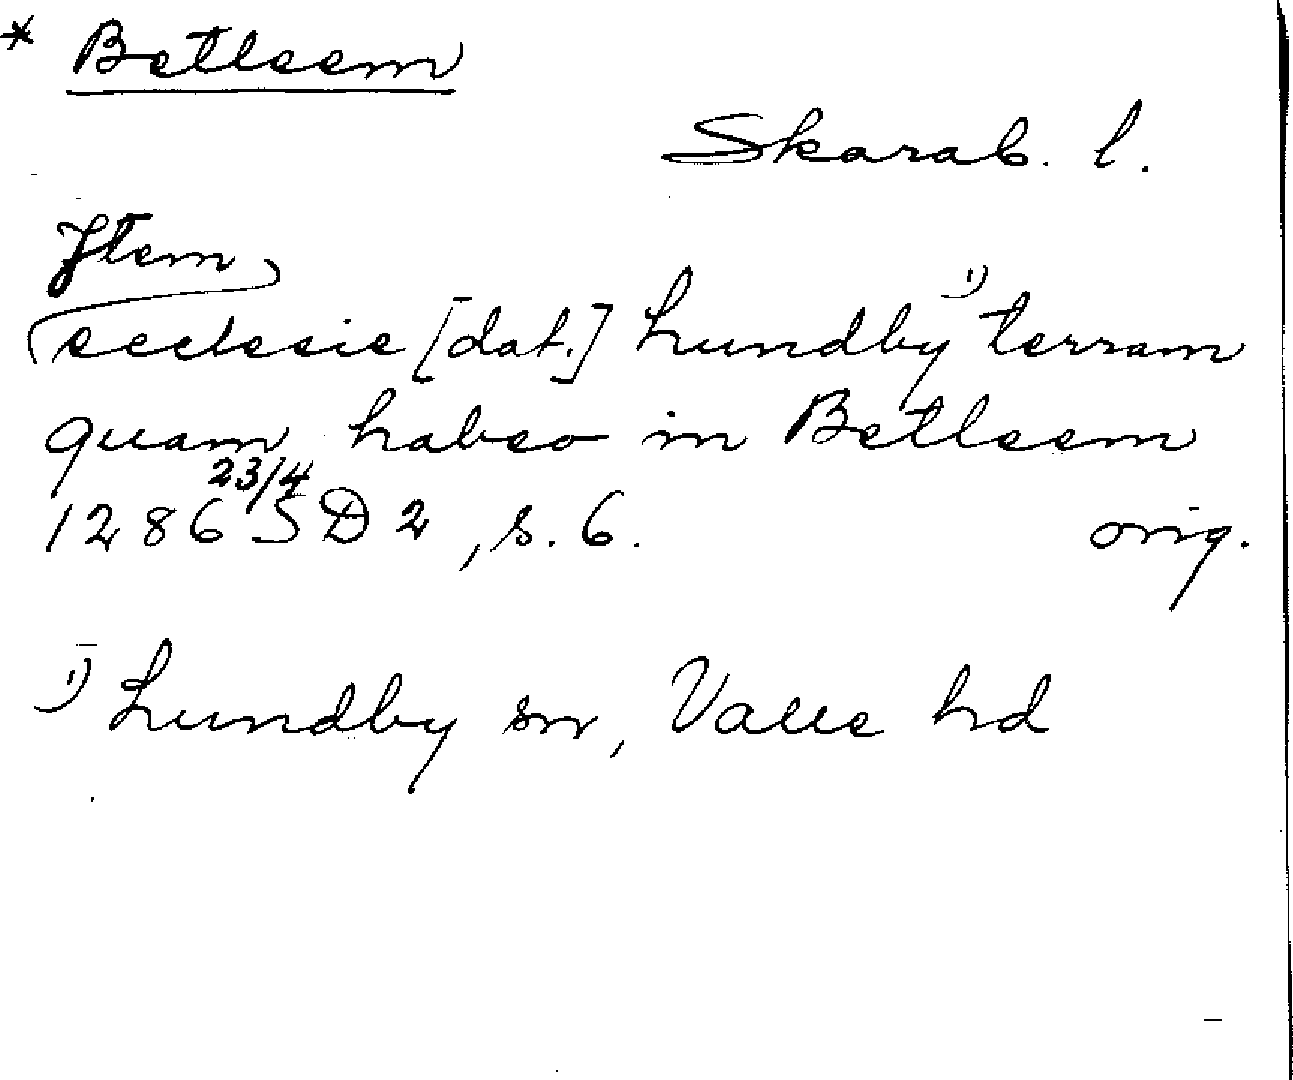 * Betleem
Skarab. l.
Item
ecclesie [dat.] Lundby ¹⁾ terram
quam habeo in Betleem
1286 23/4 SD 2, s. 6. orig.
¹⁾ Lundby sn, Valle hd